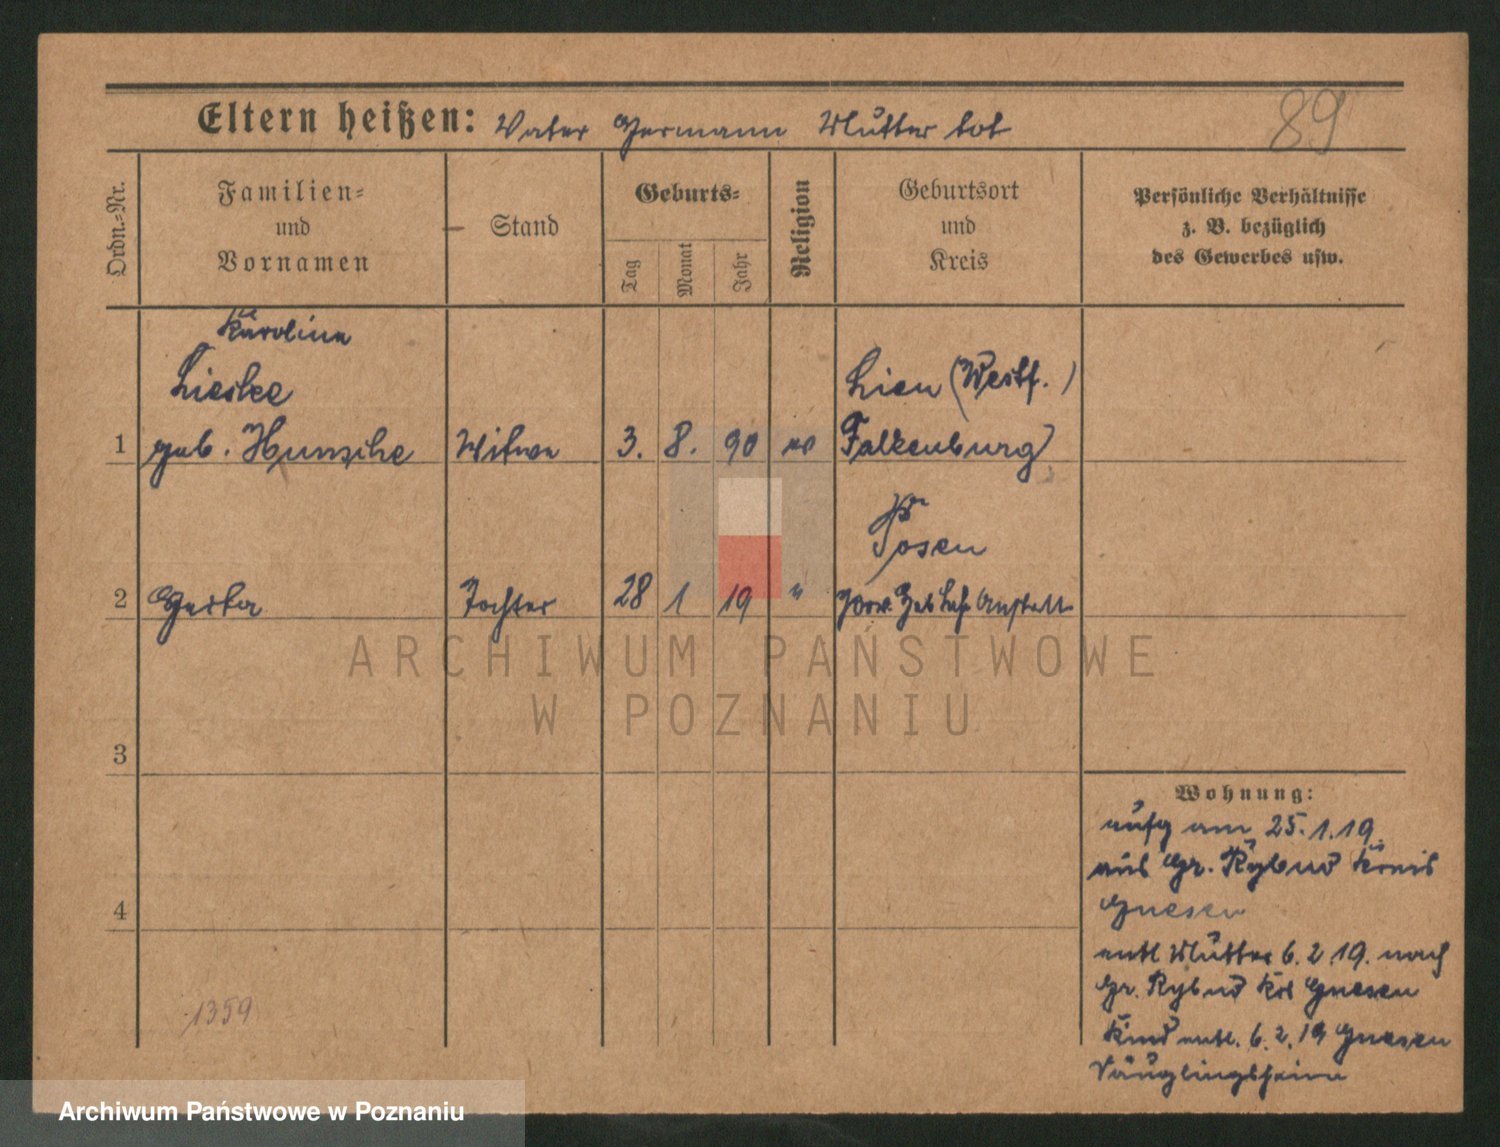 89
Eltern heißen: Vater Hermann Mutter tot
Ordn.=Nr.
Familien=
und
Vornamen
Stand
Geburts=
Tag
Monat
Jahr
Religion
Geburtsort
und
Kreis
Persönliche Verhältnisse
z. B. bezüglich
des Gewerbes usw.
Karoline
Lieske
1 geb. Hunsche Witwe 3. 8. 90 ev
Lien (Westf.)
Falkenburg
Posen
2 Gerta Tochter 28 1 19 "
Prov. Heb Lehr Anstalt
3
4
1359
Wohnung:
aufg am 25.1.19.
aus Gr. Rybno Kreis
Gnesen
entl Mutter 6.2.19. nach
Gr. Rybno Krs Gnesen
Kind entl. 6.2.19 Gnesen
Säuglingsheim
ARCHIWUM PAŃSTWOWE
W POZNANIU
Archiwum Państwowe w Poznaniu